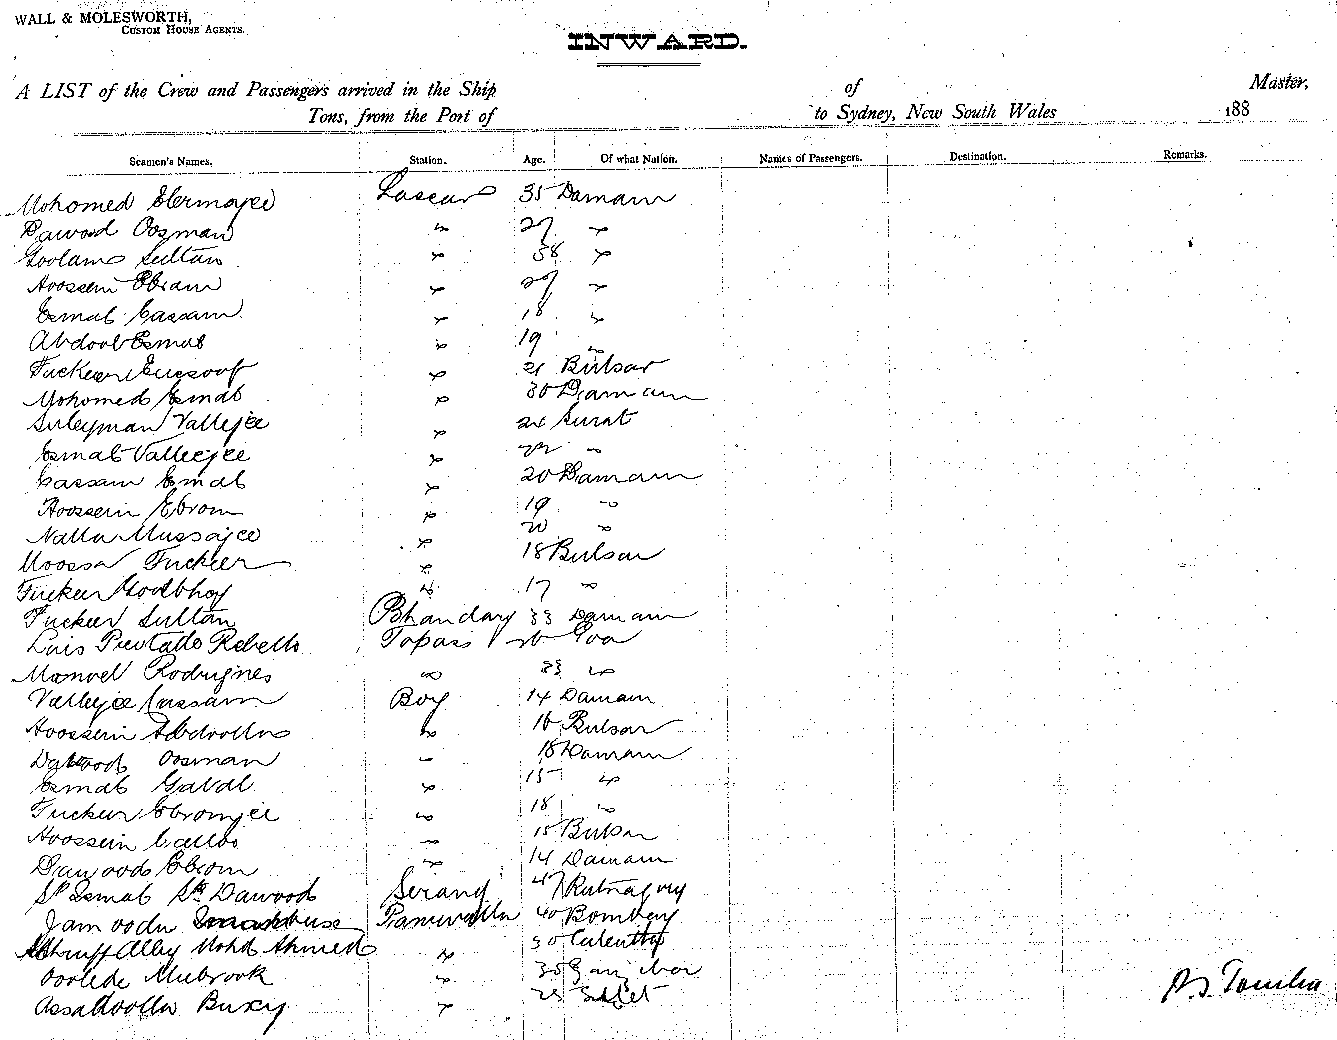 WALL & MOLESWORTH,
CUSTOM HOUSE AGENTS.
INWARD.
A LIST of the Crew and Passengers arrived in the Ship of Master,
Tons, from the Port of to Sydney, New South Wales 188
Seamen's Names. Station. Age. Of what Nation. Names of Passengers. Destination. Remarks.
Mohomed Ebramjee Lascar 35 Damaun
Dawood Oosman " 27 "
Goolam Sultan " 38 "
Hoossein Ebram " 27 "
Esmal Cassam " 18 "
Abdool Esmal " 19 "
Fuckeer Eussoof " 21 Bulsar
Mohomed Esmal " 30 Damaun
Suleyman Vallejee " Surat
Esmal Vallejee " 22 "
Cassam Esmal " 20 Damaun
Hoossein Ebrom " 19 "
Nalla Mussajee " 20 "
Moossa Fuckeer " 18 Bulsar
Fuckeer Goolbhoy " 17 "
Fuckeer Sultan Bhandary 33 Damaun
Luis Rebello Topass Goa
Manoel Rodrigues " 33 "
Vallejee Cassam Boy 14 Damaun
Hoossein Abdoolla " 16 Bulsar
Dawood Oosman " 18 Damaun
Esmal " 15 "
Fuckeer Ebromjee " 18 "
Hoossein " 15 Bulsar
Dawood Ebrom " 14 Damaun
Sk Esmal Sk Dawood Serang 47 Rutnagery
Jamoodu 40 Bombay
Ally Mohd Ahmed " 30 Calcutta
Mubrook " 35 Zanzibar
Assadoolla Buxy " 25 Sillet